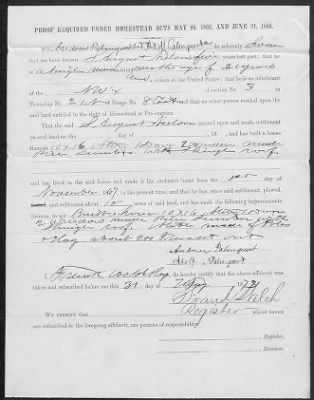 PROOF REQUIRED UNDER HOMESTEAD ACTS MAY 20, 1862, AND JUNE 21, 1866.
We Andrew Palmquist & Adolf Palmquist do solemnly Swear
that we have known S. August Nelson for five years last past; that he is
a single man over the age of 21 years
citizen of the United States; that he is an inhabitant
of the NW 4 of section No. 3 in
Township No. 21 N of Range No. 8 East and that no other person resided upon the said
land entitled to the right of Homestead or Pre-emption.
That the said S. August Nelson entered upon and made settlement
on said land on the day of , 18 , and has built a house
thereon 12x16 1 story 1 door 2 windows
Pine Lumber with Shingle roof
and has lived in the said house and made it his exclusive home from the day of
November 67, to the present time, and that he has, since said settlement, plowed,
and cultivated about 10 acres of said land, and has made the following improvements
thereon, to wit: Built a house 12x16 1 story 1 Door
2 Windows made Pine Lumber with
Shingle roof, Stable made of Poles
& Hay about 200 Trees set out
Andrew Palmquist
Adolf Palmquist
I, Frank Welch Reg, do hereby certify that the above affidavit was
taken and subscribed before me this 31 day of 1872
Frank Welch
Register
We certify that whose names
are subscribed to the foregoing affidavit, are persons of respectability.
, Register.
, Receiver.